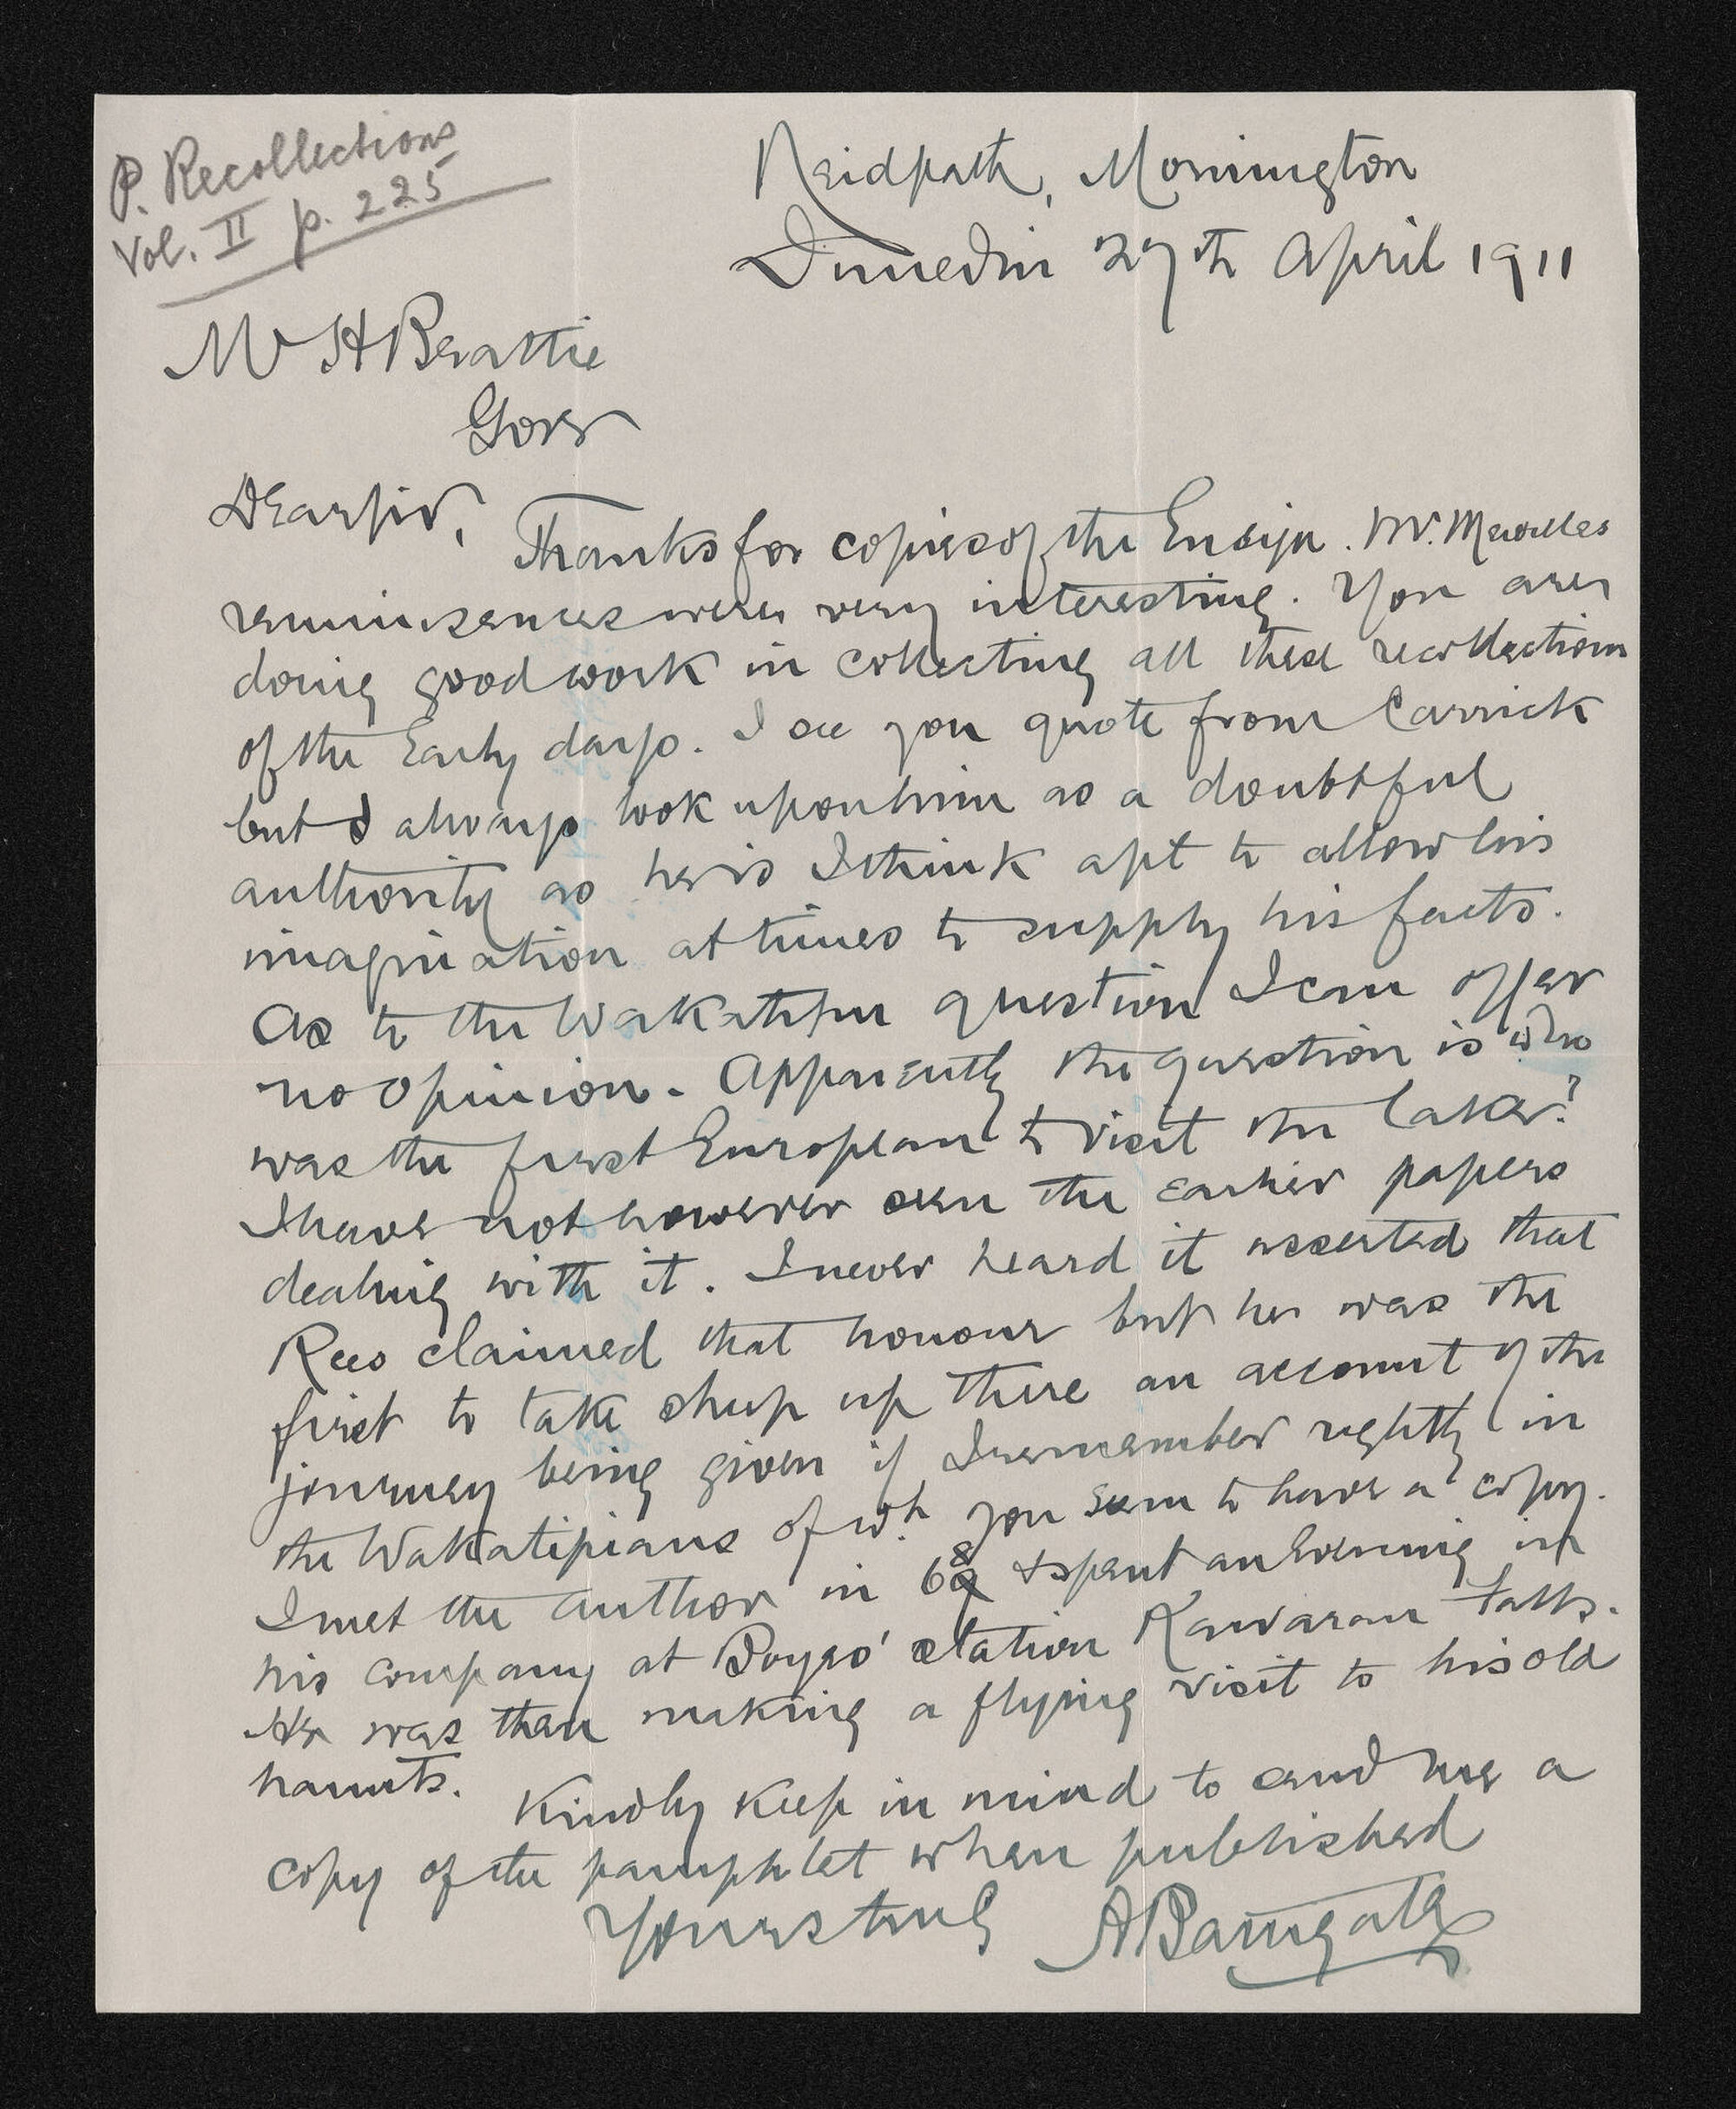 P. Recollections
Vol. II p. 225
Neidpath, Mornington
Dunedin 27th April 1911
Mr H Beattie
Gore
Dear Sir,
Thanks for copies of the Ensign. Mr.
reminiscences were very interesting. You are
doing good work in collecting all these recollections
of the Early days. I see you quote from Carrick
but I always look upon him as a doubtful
authority as he is I think apt to allow his
imagination at times to supply his facts.
As to the Wakatipu question I can offer
no opinion. Apparently the question is who
was the first European to visit the lake?
I have not however seen the earlier papers
dealing with it. I never heard it asserted that
Rees claimed that honour but he was the
first to take sheep up there an account of the
journey being given if I remember rightly in
the Wakatipians of wh. you seem to have a copy.
I met the author in 68 & spent an Evening in
his company at Boyes' station Kawarau Falls.
He was then making a flying visit to his old
haunts.
Kindly keep in mind to send me a
copy of the pamphlet when published
Yours truly A Bathgate